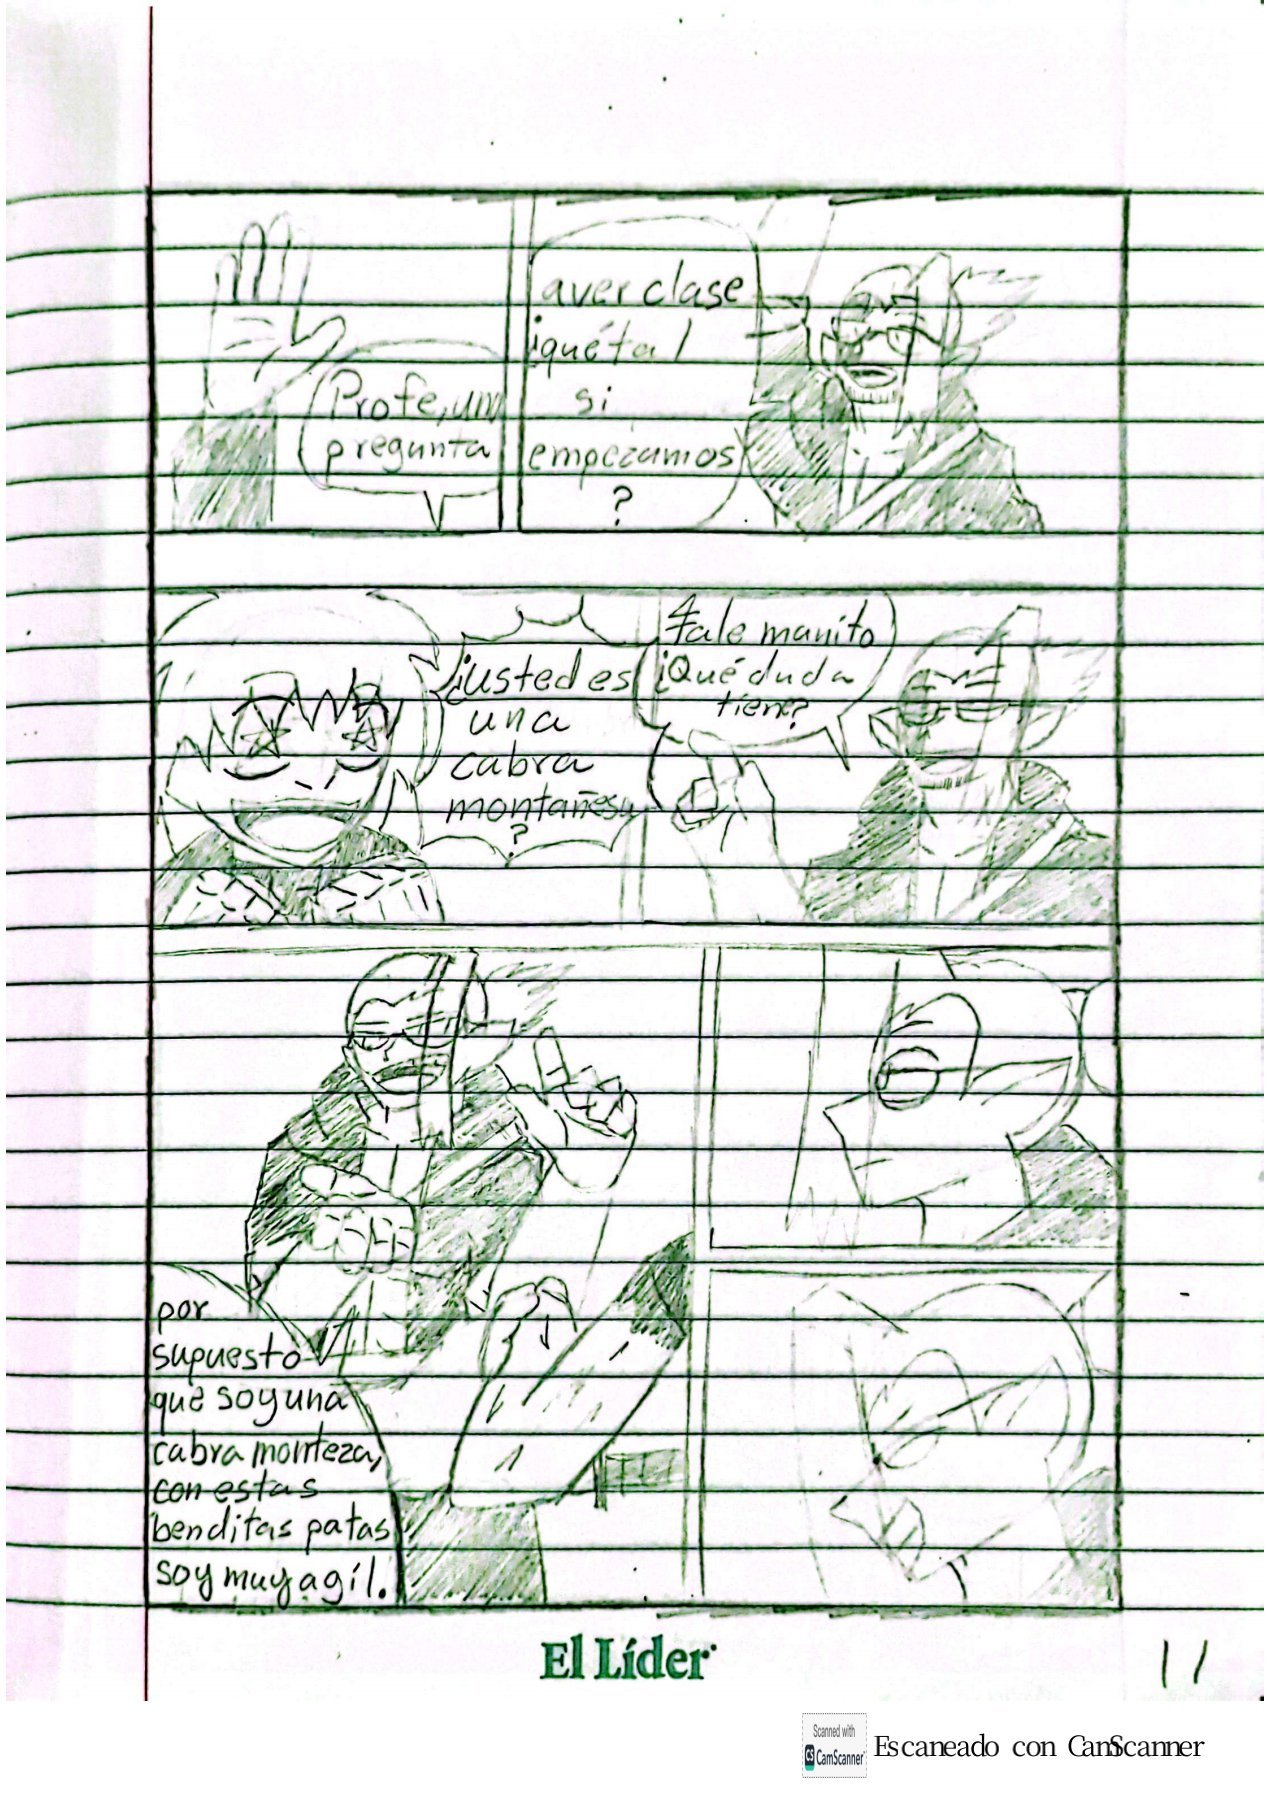 aver clase
¡qué tal
si
empezamos
?
Profe, una
pregunta
Tale manito
¿Qué duda
tiene?
¿usted es
una
cabra
montañesa
?
por
supuesto
que soy una
cabra monteza,
con estas
benditas patas
soy muy agíl.
El Líder
11
Scanned with
CS CamScanner
Escaneado con CamScanner